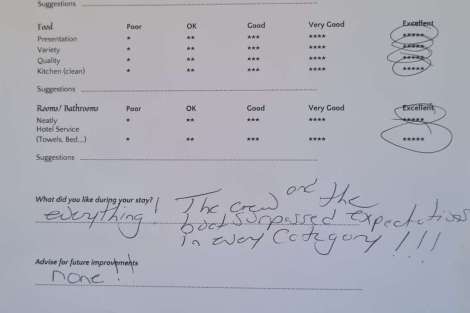 Suggestions
Food Poor OK Good Very Good Excellent
Presentation * ** *** **** *****
Variety * ** *** **** *****
Quality * ** *** **** *****
Kitchen (clean) * ** *** **** *****
Suggestions
Rooms/ Bathrooms Poor OK Good Very Good Excellent
Neatly * ** *** **** *****
Hotel Service
(Towels, Bed...) * ** *** **** *****
Suggestions
What did you like during your stay?
everything! The crew on the
boat surpassed expectations
in every Category !!!
Advise for future improvements
none!!